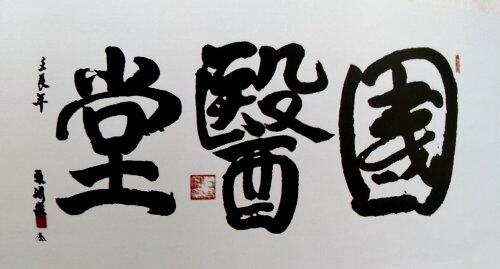 國醫堂
壬辰年